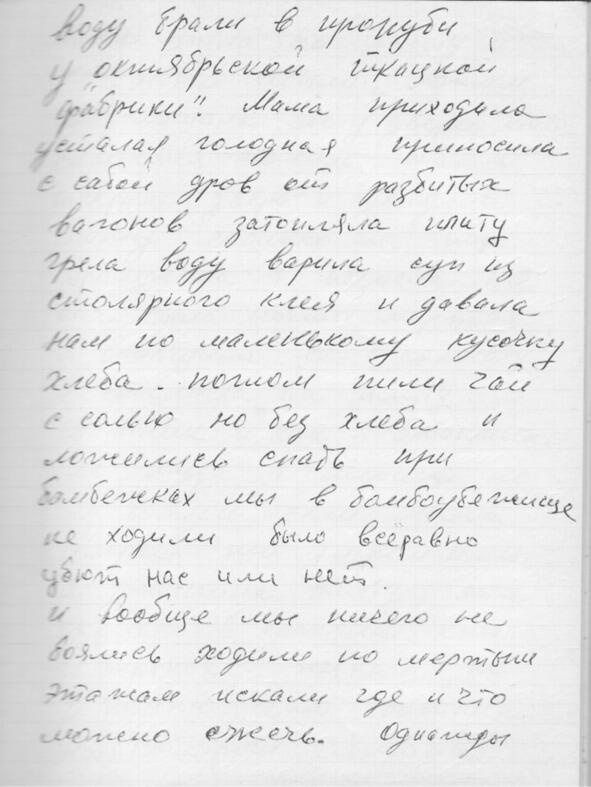 воду брали в прорубы
у "октябрьской ткацкой
фабрики". Мама приходила
усталая голодная приносила
с сабой дров от разбитых
вагонов затопляла плиту
грела воду варила суп из
столярного клея и давала
нам по маленькому кусочку
хлеба. потом пили чай
с солью но без хлеба и
ложились спать при
бамбежках мы в бамбоубежище
не ходили было всёравно
убют нас или нет.
и вообще мы ничего не
боялись ходили по мертым
этажам искали где и что
можно сжечь. Однажды